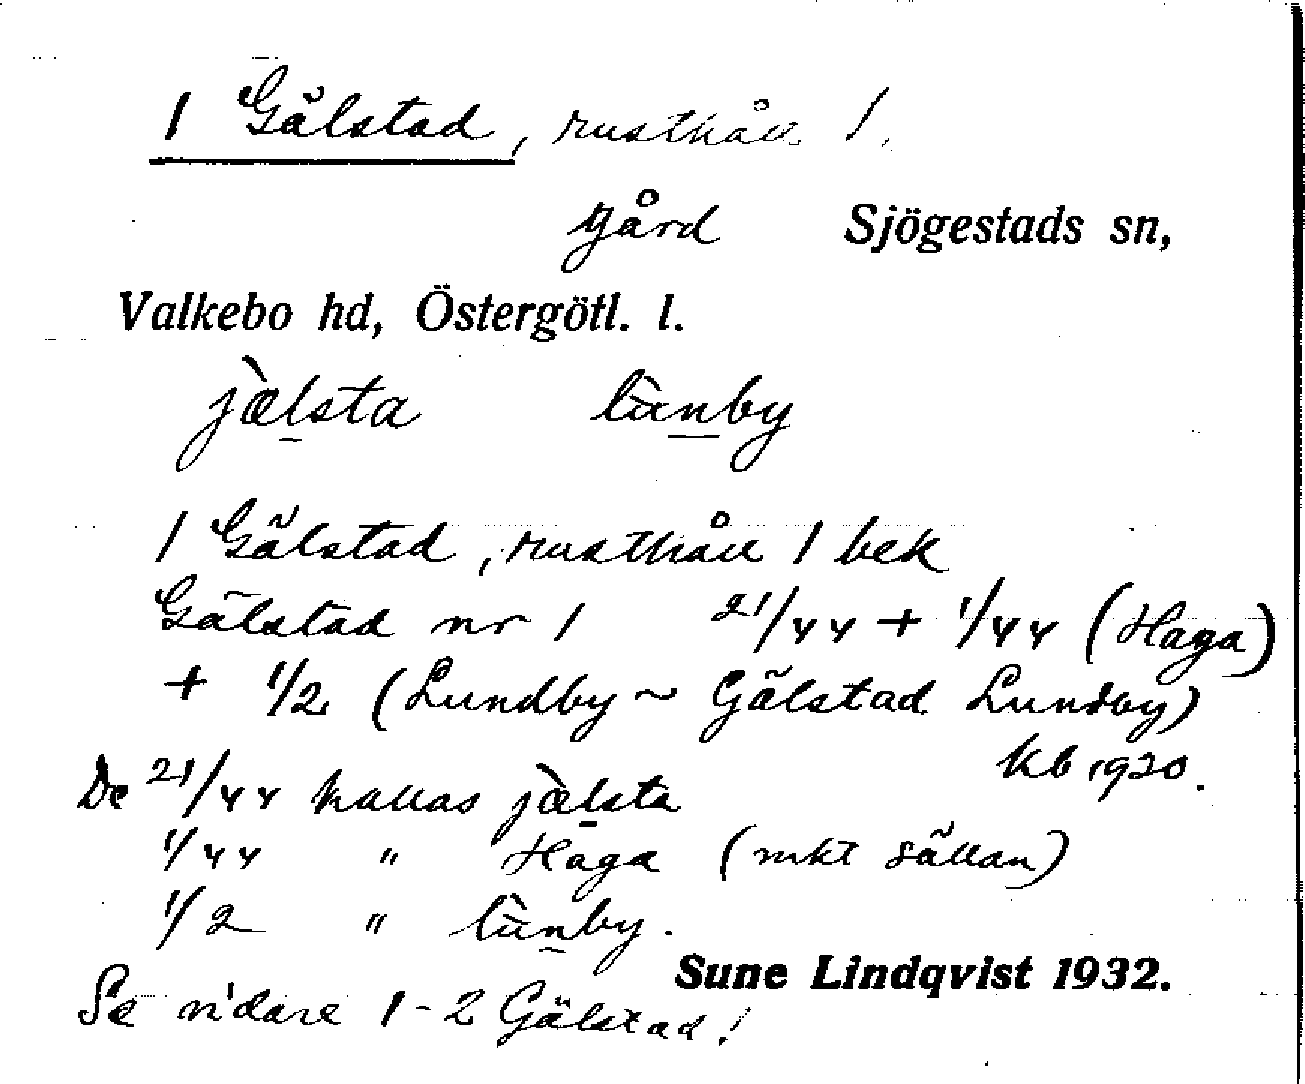 1 Gälstad, rusthåll 1.
gård Sjögestads sn,
Valkebo hd, Östergötl. l.
jæ̀lsta lùnby
1 Gälstad, rusthåll 1 bek
Gälstad nr 1 21/44 + 1/44 (Haga)
+ 1/2 (Lundby ~ Gälstad Lundby)
kb 1920.
De 21/44 kallas jæ̀lsta
1/44 " Haga (mkt sällan)
1/2 " lùnby.
Sune Lindqvist 1932.
Se vidare 1-2 Gälstad!